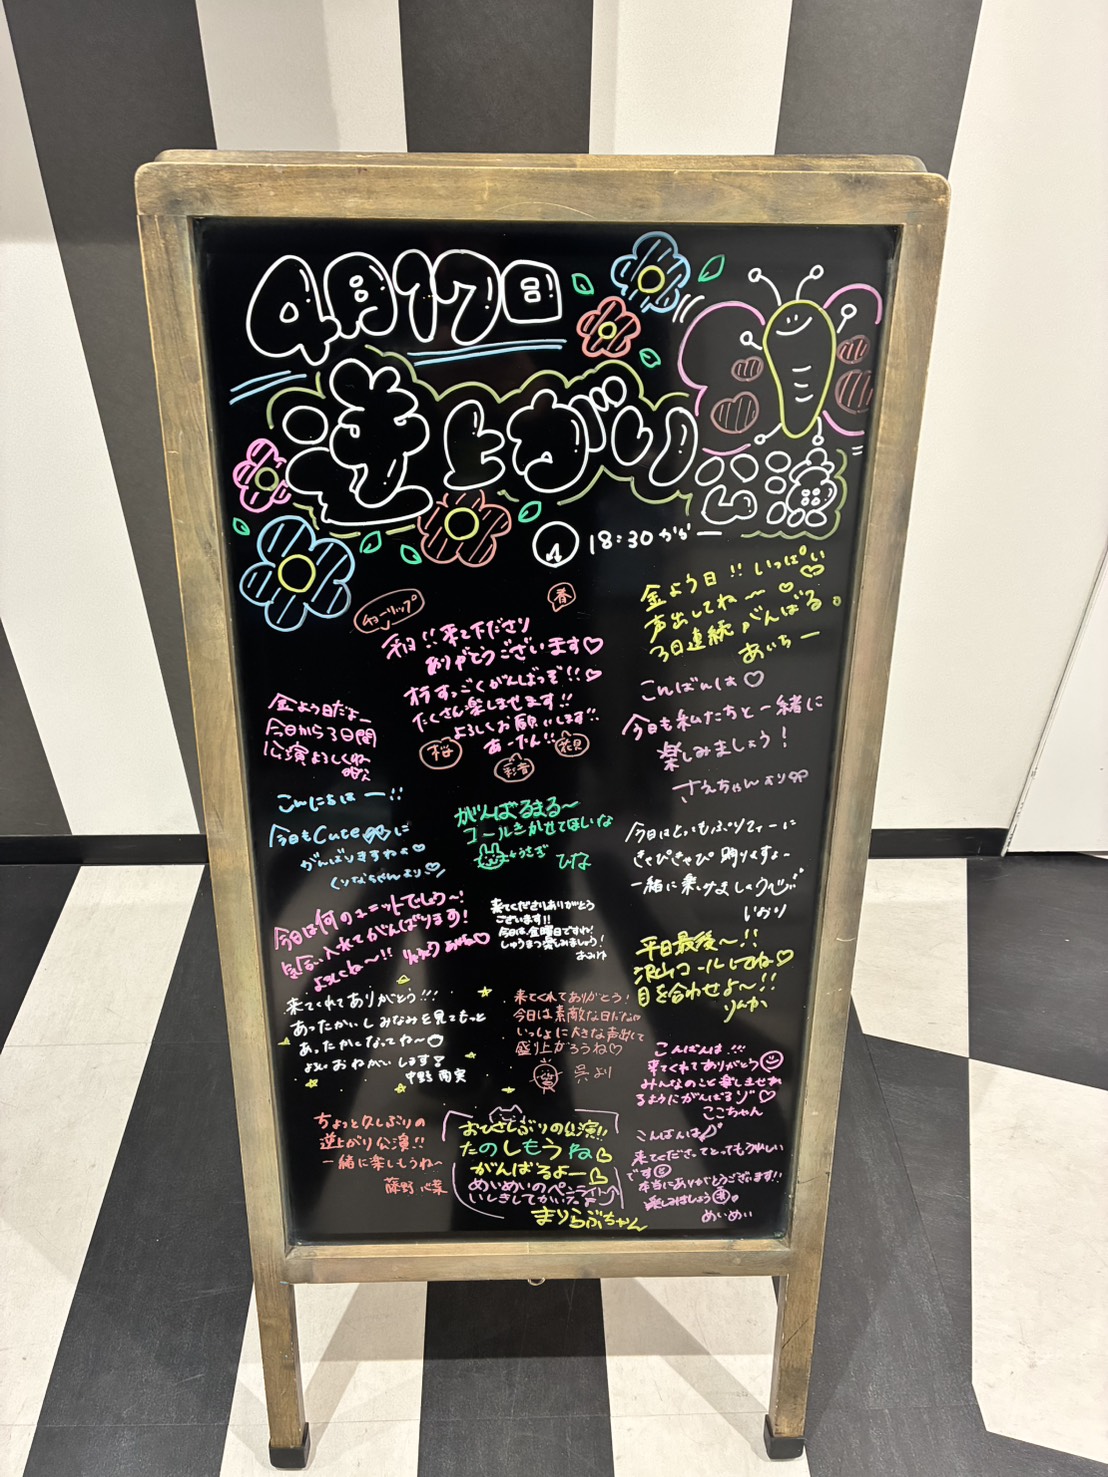 4月17日
逆上がり
公演
18:30から ー
チューリップ
春
やほ!!来て下さり
ありがとうございます♡
すっごくがんばっぞ!!♡
たくさん楽しませます!!
よろしくお願いします!!
あーたん!!
桜
彩音
花見
金よう日!!いっぱい
声出してね〜♡
3日連続がんばる。
あいちー
金よう日だよー
今日から3日間
公演よろしくね
こんばんは♡
今日も私たちと一緒に
楽しみましょう!
さえちゃんより
こんにちはー!!
今日もCuteに
がんばりますねぇ♡
くりなちゃんより♡
がんばるまる〜
コールきかせてほしいな
←うさぎ ひな
今日はとってもぷりてぃーに
きゃぴきゃぴ踊りますよ〜
一緒に楽しみましょうね
いおり
今日は何のユニットでしょう〜!
気合い入れてがんばります!
よろしくね〜!!
来てくださりありがとう
ございます!!
今日は、金曜日ですね!
しゅうまつ楽しみましょう!
おみゆ
平日最後〜!!
沢山コールしてね♡
目を合わせよ〜!!
りんか
来てくれてありがとう!!!
あったかいしみなみを見てもっと
あったかくなってね〜
よろしくおねがいします!
中野 南実
来てくれてありがとう!
今日は素敵な日だなぁ
いっしょに大きな声出して
盛り上がろうね♡
呉より
こんばんは!!!
来てくれてありがとう
みんなのこと楽しませれ
るようにがんばるゾ♡
ここちゃん
ちょっと久しぶりの
逆上がり公演!!
一緒に楽しもうね〜
藤野 心葉
おひさしぶりの公演!!
たのしもうね♡
がんばるよー♡
めいめいのペンライト
いしきしてかいたよ
まりらぶちゃん
こんばんは
来てくださってとってもうれしい
です
本当にありがとうございます!!
楽しみましょう
めいめい